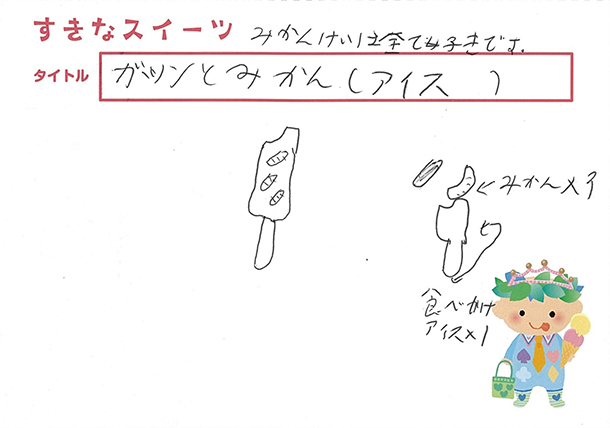 すきなスイーツ みかんけいは全て好きです。
タイトル ガツンとみかん(アイス )
←みかん×3
食べかけ
アイス×1